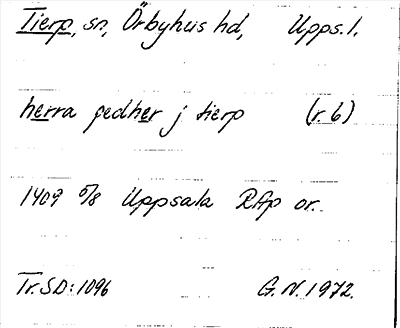 Tierp, sn, Örbyhus hd, Upps.l.
herra pedher j tierp (r. 6)
1409 5/8 Uppsala RAp or.
Tr. SD: 1096 G.N. 1972.